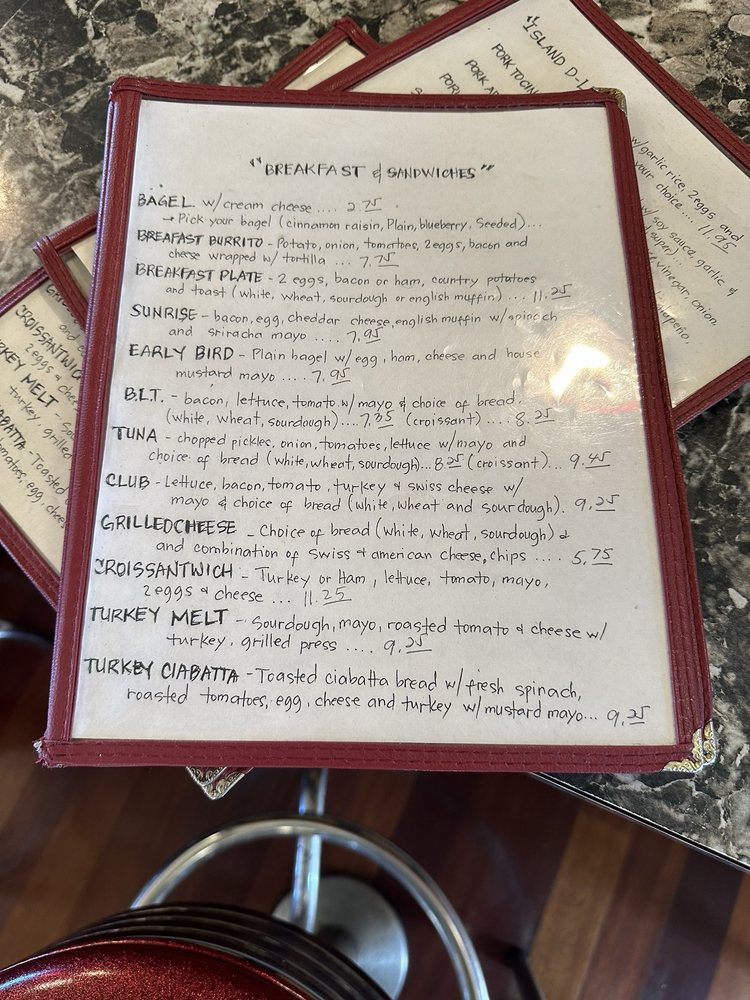 "BREAKFAST & SANDWICHES"
BAGEL w/cream cheese .... 2.75
→ Pick your bagel (cinnamon raisin, Plain, blueberry, Seeded)...
BREAFAST BURRITO - Potato, onion, tomatoes, 2eggs, bacon and
cheese wrapped w/ tortilla ... 7.75
BREAKFAST PLATE - 2 eggs, bacon or ham, country potatoes
and toast (white, wheat, sourdough or english muffin) ... 11.25
SUNRISE - bacon, egg, cheddar cheese, english muffin w/ spinach
and sriracha mayo .... 7.95
EARLY BIRD - Plain bagel w/ egg, ham, cheese and house
mustard mayo ..... 7.95
B.L.T. - bacon, lettuce, tomato w/ mayo & choice of bread.
(white, wheat, sourdough) .... (croissant) .... 8.25
TUNA - chopped pickles, onion, tomatoes, lettuce w/mayo and
choice of bread (white, wheat, sourdough)... 8.25 (croissant)... 9.45
CLUB - Lettuce, bacon, tomato, turkey & swiss cheese w/
mayo & choice of bread (white, wheat and sourdough). 9.25
GRILLEDCHEESE - Choice of bread (white, wheat, sourdough) &
and combination of Swiss & american cheese, chips .... 5.75
CROISSANTWICH - Turkey or Ham, lettuce, tomato, mayo,
2eggs & cheese ... 11.25
TURKEY MELT - Sourdough, mayo, roasted tomato & cheese w/
turkey, grilled press .... 9.25
TURKEY CIABATTA - Toasted ciabatta bread w/ fresh spinach,
roasted tomatoes, egg, cheese and turkey w/ mustard mayo... 9.25
"ISLAND
PORK
PORK
w/garlic rice, 2eggs and
your choice.... 11.95
w/soy sauce, garlic &
vinegar, onion
CROISSANTWIC
2eggs & chee
TURKEY MELT -
turkey grilled
CIABATTA - Toasted
tomatoes, egg, chees